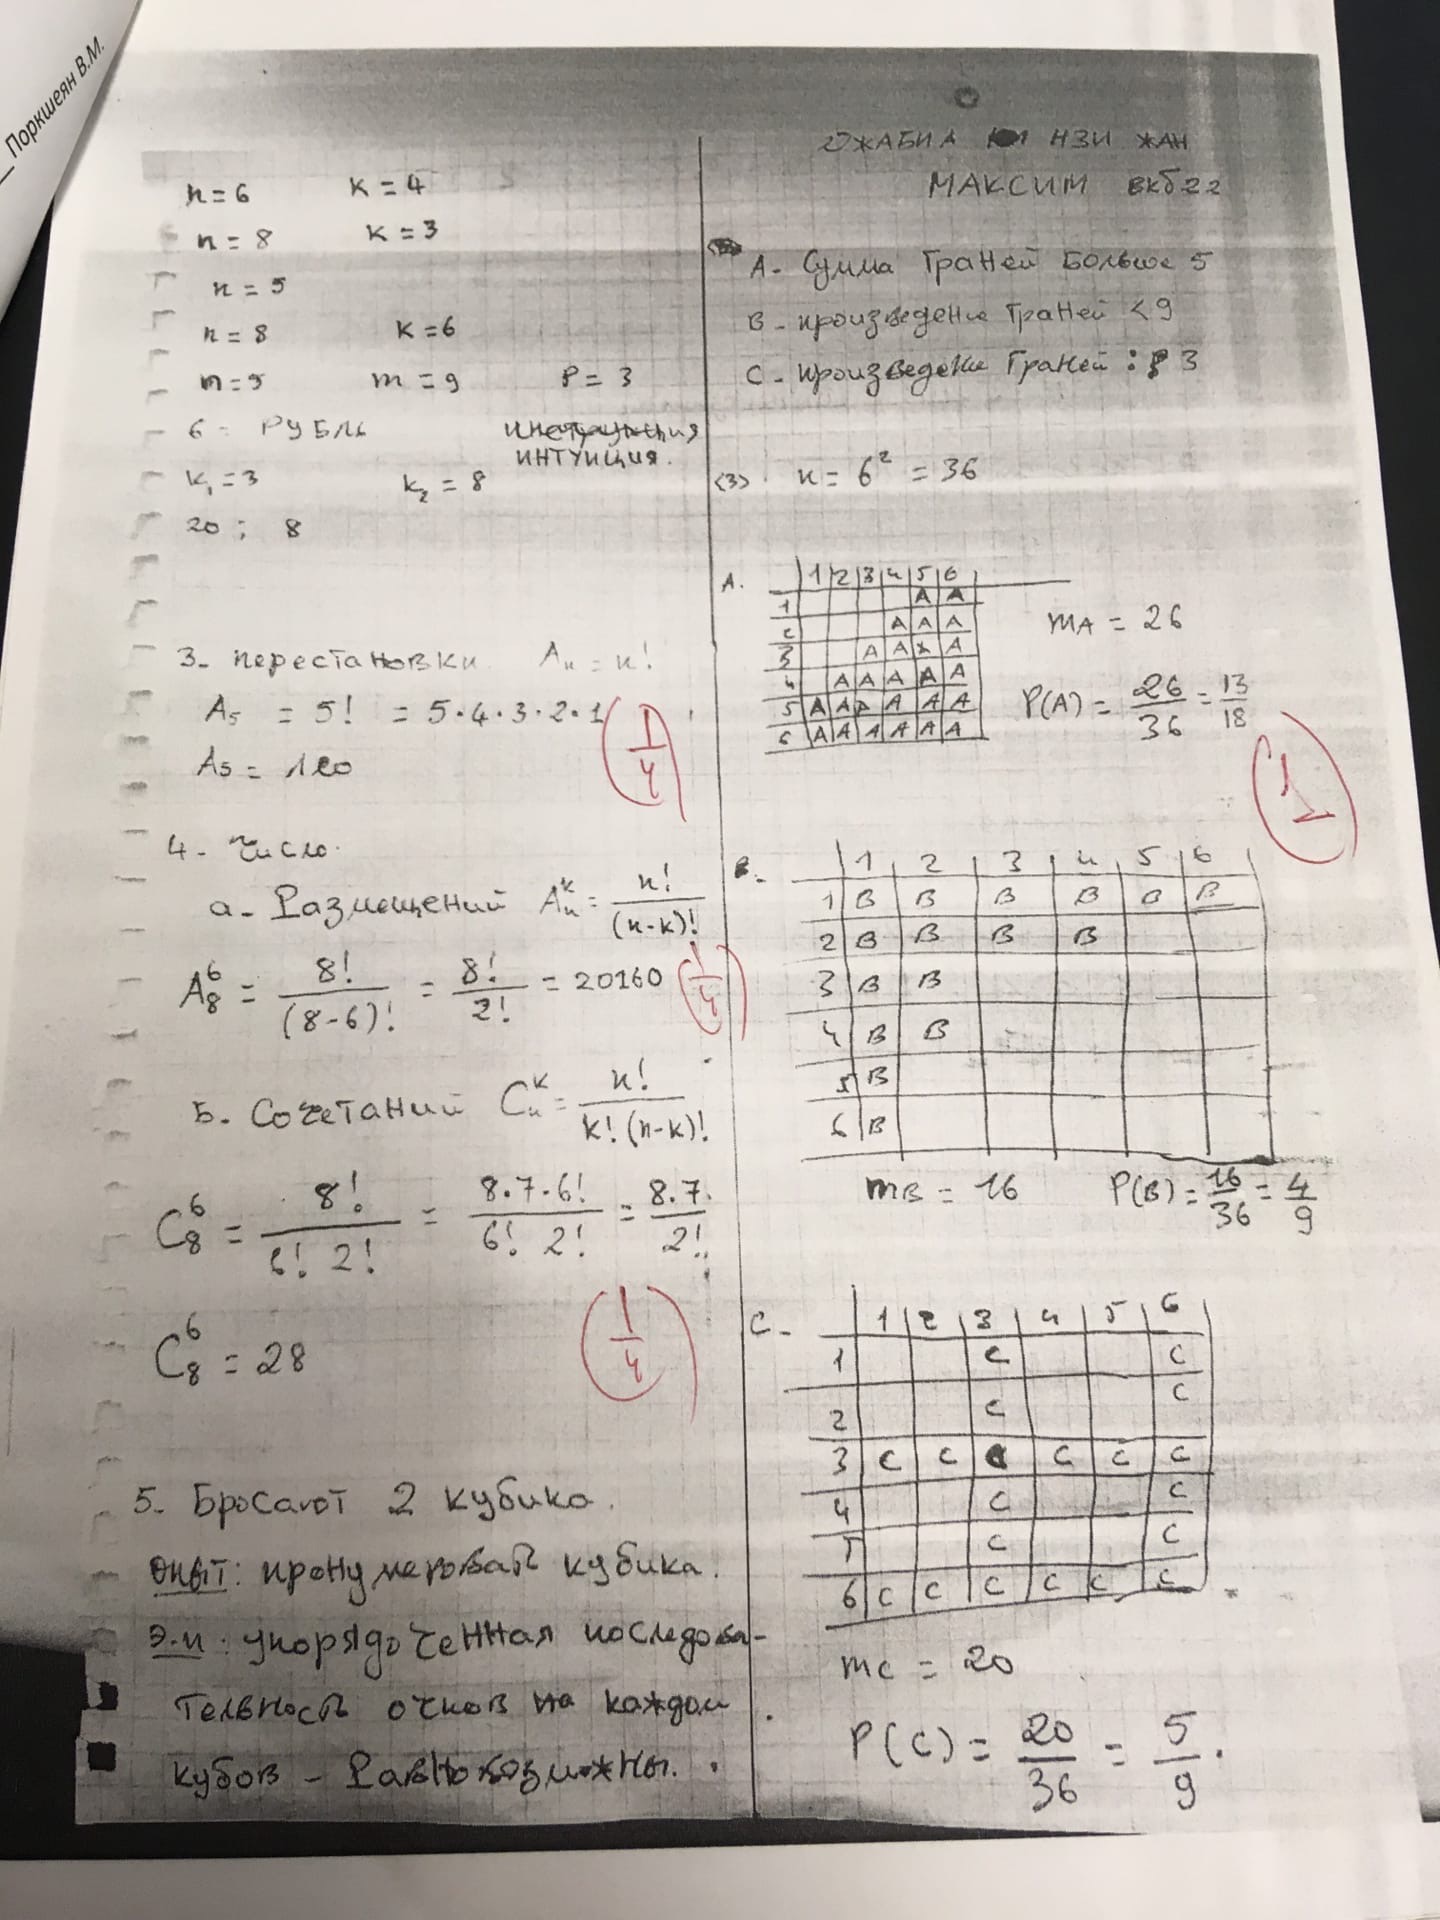 Поркшеян В.М.
n=6 k=4
n=8 k=3
n=5
n=8 k=6
n=5 m=9 P=3
6= РУБЛЬ
ИНТУИЦИЯ.
k₁=3 k₂=8
20; 8
3- перестановки Aₙ=n!
A₅ = 5! = 5·4·3·2·1
1/4
A₅ = 120
4- Число.
а- Размещений Aₙᵏ = n!/(n-k)!
A₈⁶ = 8!/(8-6)! = 8!/2! = 20160
1/4
Б- Сочетаний Cₙᵏ = n!/k!(n-k)!
C₈⁶ = 8!/6! 2! = 8·7·6!/6! 2! = 8·7/2!
C₈⁶ = 28
1/4
5- Бросают 2 кубика.
опыт: пронумероват кубика.
э.и: упорядоченная последова-
тельность очков на каждом
кубов - Равновозможны.
ДЖАБИА НЗИ ЖАН
МАКСИМ ВКБ22
A- Сумма Граней Больше 5
B- произведение Граней <9
C- произведение Граней : 3
(3) n=6²=36
A. 1 2 3 4 5 6
1 A A
2 A A A
3 A A A A
4 A A A A A
5 A A A A A A
6 A A A A A A
mA = 26
P(A) = 26/36 = 13/18
1
B- 1 2 3 4 5 6
1 B B B B B B
2 B B B B
3 B B
4 B B
5 B
6 B
mB = 16 P(B) = 16/36 = 4/9
C- 1 2 3 4 5 6
1 C C
2 C C
3 C C C C C C
4 C C
5 C C
6 C C C C C C
mC = 20
P(C) = 20/36 = 5/9.